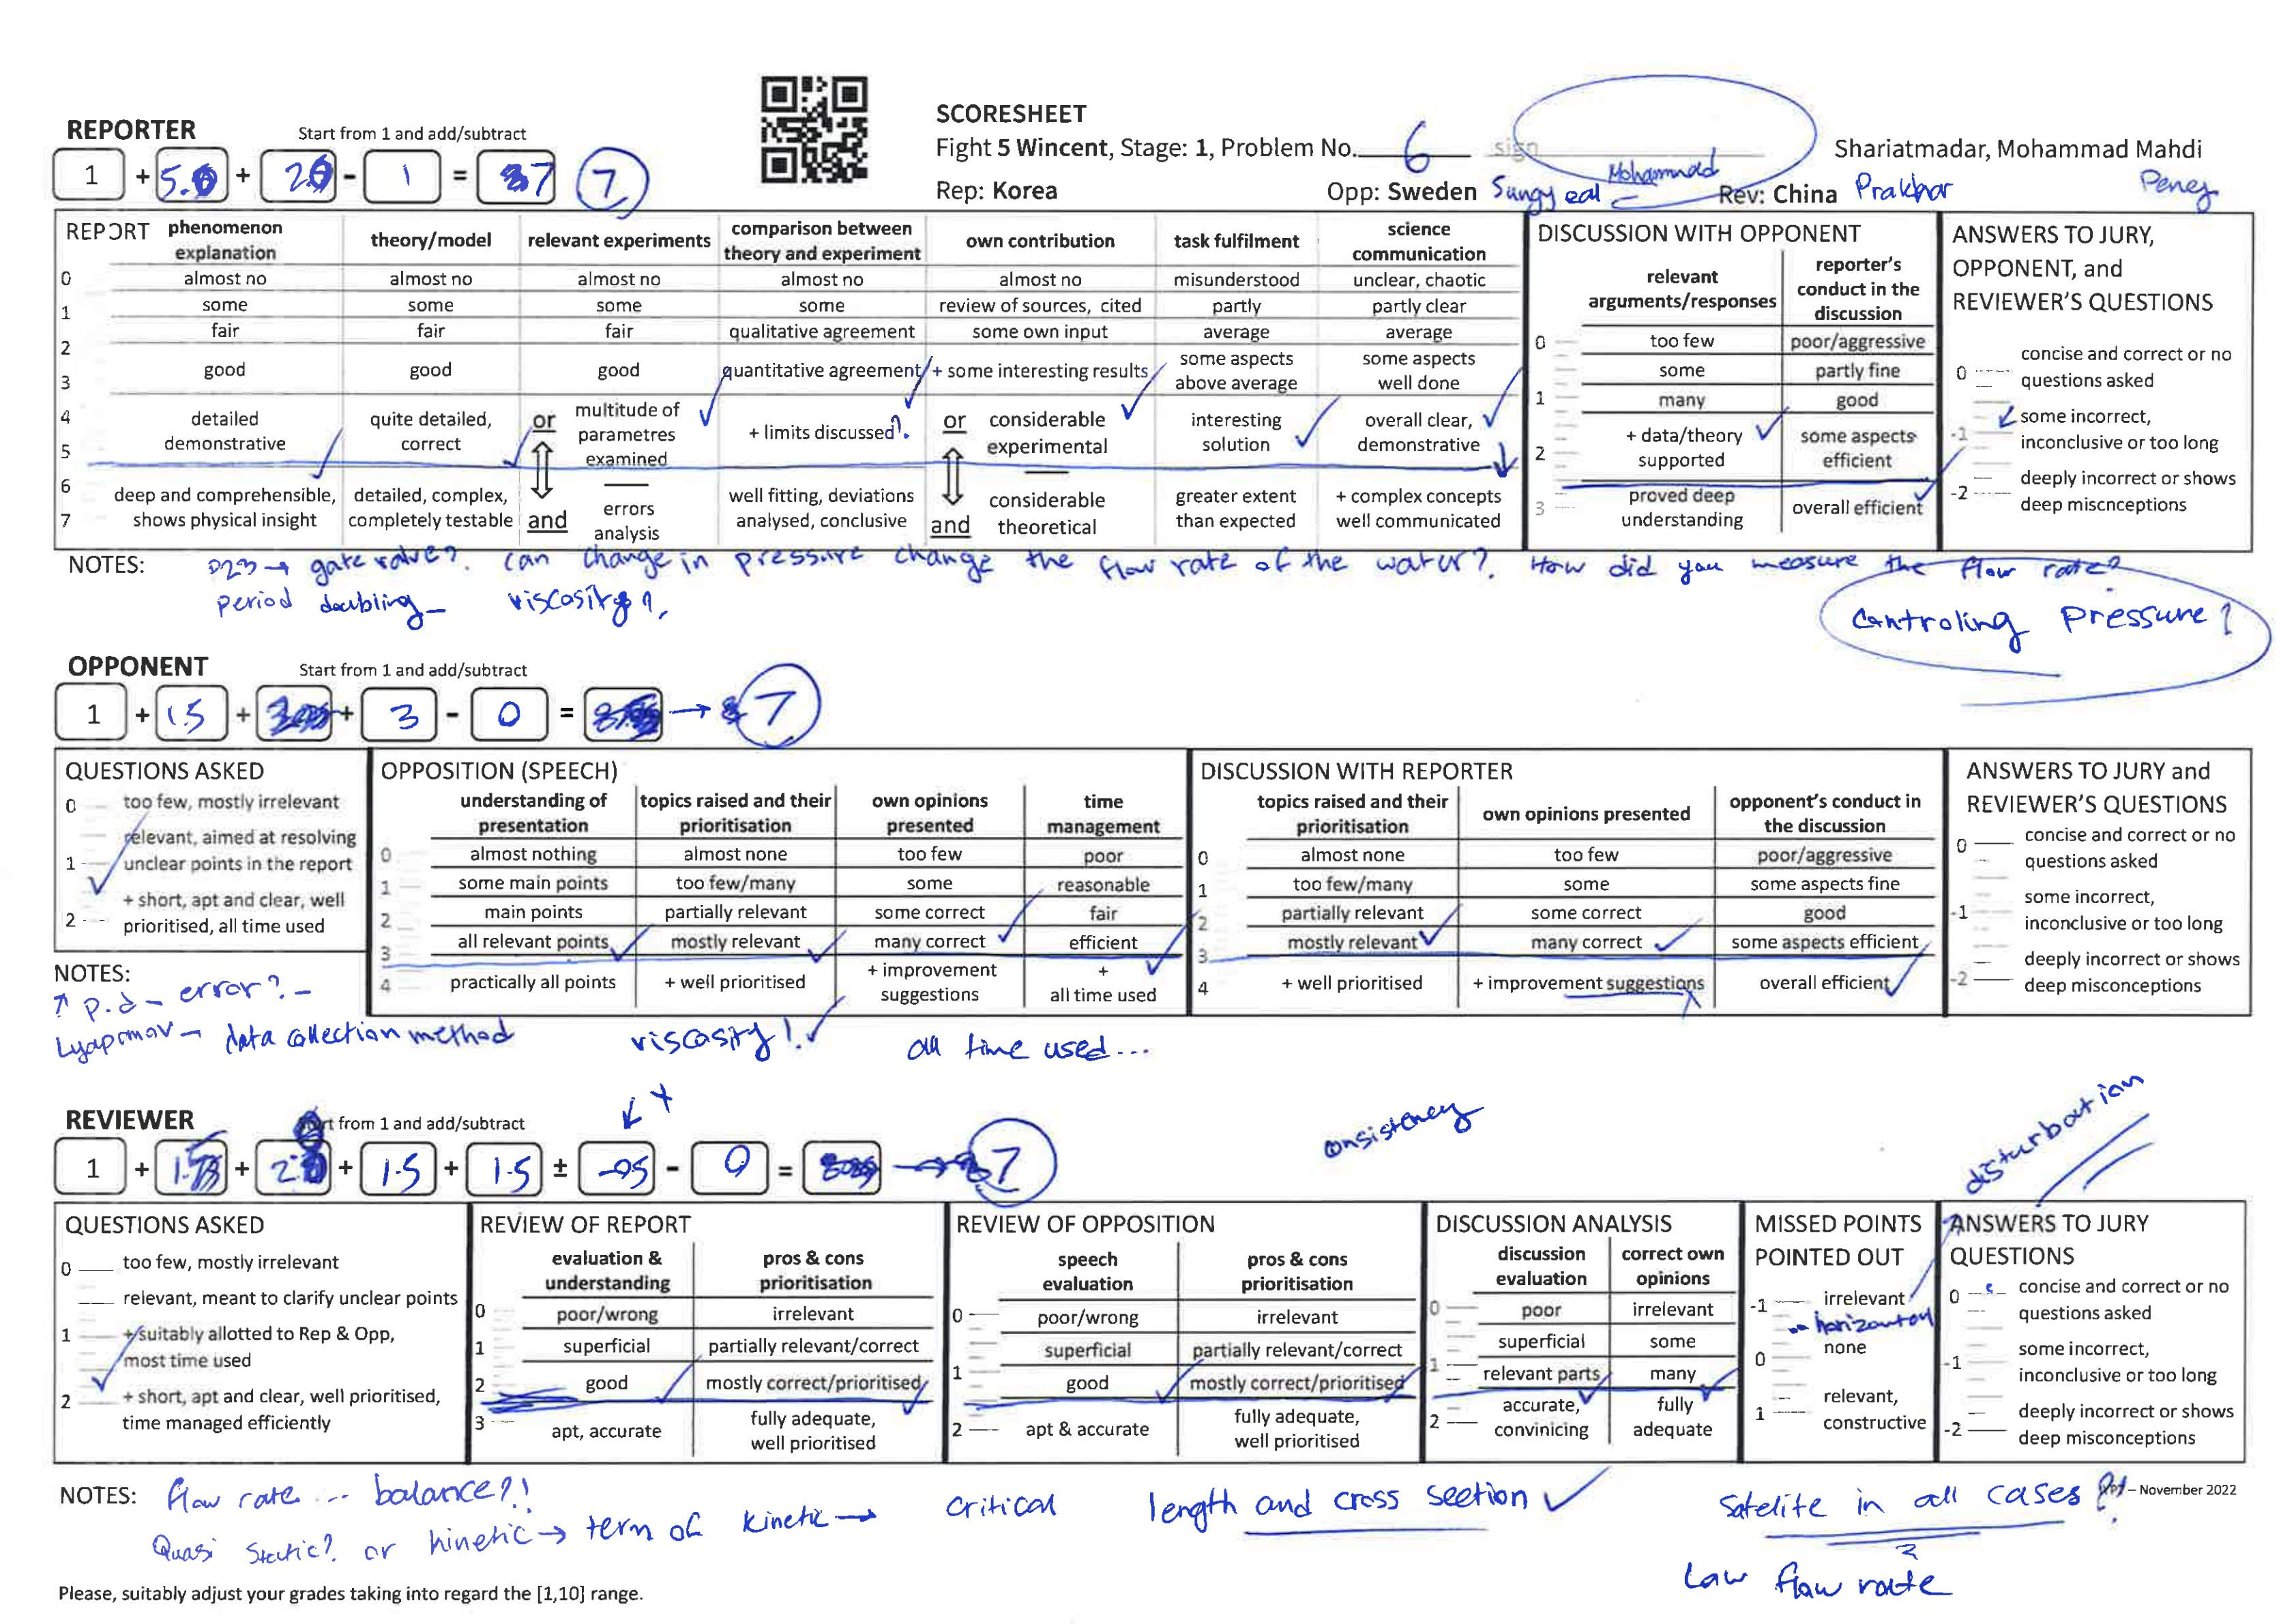 SCORESHEET
REPORTER Start from 1 and add/subtract
Fight 5 Wincent, Stage: 1, Problem No. 6 sign Shariatmadar, Mohammad Mahdi
1 + + - 1 = 7 7
Rep: Korea Opp: Sweden Mohammad Rev: China Prakhar
REPORT
phenomenon explanation theory/model relevant experiments comparison between theory and experiment own contribution task fulfilment science communication
0 almost no almost no almost no almost no almost no misunderstood unclear, chaotic
1 some some some some review of sources, cited partly partly clear
2 fair fair fair qualitative agreement some own input average average
3 good good good quantitative agreement + some interesting results some aspects above average some aspects well done
4 detailed demonstrative quite detailed, correct or multitude of parametres examined + limits discussed?. or considerable experimental interesting solution overall clear, demonstrative
5
6 deep and comprehensible, shows physical insight detailed, complex, completely testable and errors analysis well fitting, deviations analysed, conclusive and considerable theoretical greater extent than expected + complex concepts well communicated
7
DISCUSSION WITH OPPONENT
relevant arguments/responses reporter's conduct in the discussion
0 too few poor/aggressive
some partly fine
1 many good
2 + data/theory supported some aspects efficient
3 proved deep understanding overall efficient
ANSWERS TO JURY, OPPONENT, and REVIEWER'S QUESTIONS
0 concise and correct or no questions asked
-1 some incorrect, inconclusive or too long
-2 deeply incorrect or shows deep miscnceptions
NOTES: gate valve? can change in pressure change the flow rate of the water? How did you measure the flow rate?
period doubling viscosity?
Controling pressure?
OPPONENT Start from 1 and add/subtract
1 + 1.5 + + 3 - 0 = → 7
QUESTIONS ASKED
0 too few, mostly irrelevant
relevant, aimed at resolving
1 unclear points in the report
+ short, apt and clear, well
2 prioritised, all time used
OPPOSITION (SPEECH)
understanding of presentation topics raised and their prioritisation own opinions presented time management
0 almost nothing almost none too few poor
1 some main points too few/many some reasonable
2 main points partially relevant some correct fair
3 all relevant points mostly relevant many correct efficient
4 practically all points + well prioritised + improvement suggestions + all time used
DISCUSSION WITH REPORTER
topics raised and their prioritisation own opinions presented opponent's conduct in the discussion
0 almost none too few poor/aggressive
1 too few/many some some aspects fine
2 partially relevant some correct good
3 mostly relevant many correct some aspects efficient
4 + well prioritised + improvement suggestions overall efficient
ANSWERS TO JURY and REVIEWER'S QUESTIONS
0 concise and correct or no questions asked
-1 some incorrect, inconclusive or too long
-2 deeply incorrect or shows deep misconceptions
NOTES:
↑ p.d – error? –
data collection method viscosity! all time used...
REVIEWER from 1 and add/subtract
consistency
1 + + + 1.5 + 1.5 ± - 0 = → 7
QUESTIONS ASKED
0 too few, mostly irrelevant
relevant, meant to clarify unclear points
1 + suitably allotted to Rep & Opp, most time used
2 + short, apt and clear, well prioritised, time managed efficiently
REVIEW OF REPORT
evaluation & understanding pros & cons prioritisation
0 poor/wrong irrelevant
1 superficial partially relevant/correct
2 good mostly correct/prioritised
3 apt, accurate fully adequate, well prioritised
REVIEW OF OPPOSITION
speech evaluation pros & cons prioritisation
0 poor/wrong irrelevant
superficial partially relevant/correct
1 good mostly correct/prioritised
2 apt & accurate fully adequate, well prioritised
DISCUSSION ANALYSIS
discussion evaluation correct own opinions
0 poor irrelevant
superficial some
1 relevant parts many
2 accurate, convinicing fully adequate
MISSED POINTS POINTED OUT
-1 irrelevant
0 none
1 relevant, constructive
ANSWERS TO JURY QUESTIONS
0 concise and correct or no questions asked
-1 some incorrect, inconclusive or too long
-2 deeply incorrect or shows deep misconceptions
NOTES: flow rate ... balance?! critical length and cross section satelite in all cases – November 2022
Quasi static? or kinetic → term of kinetic →
Law flow rate
Please, suitably adjust your grades taking into regard the [1,10] range.